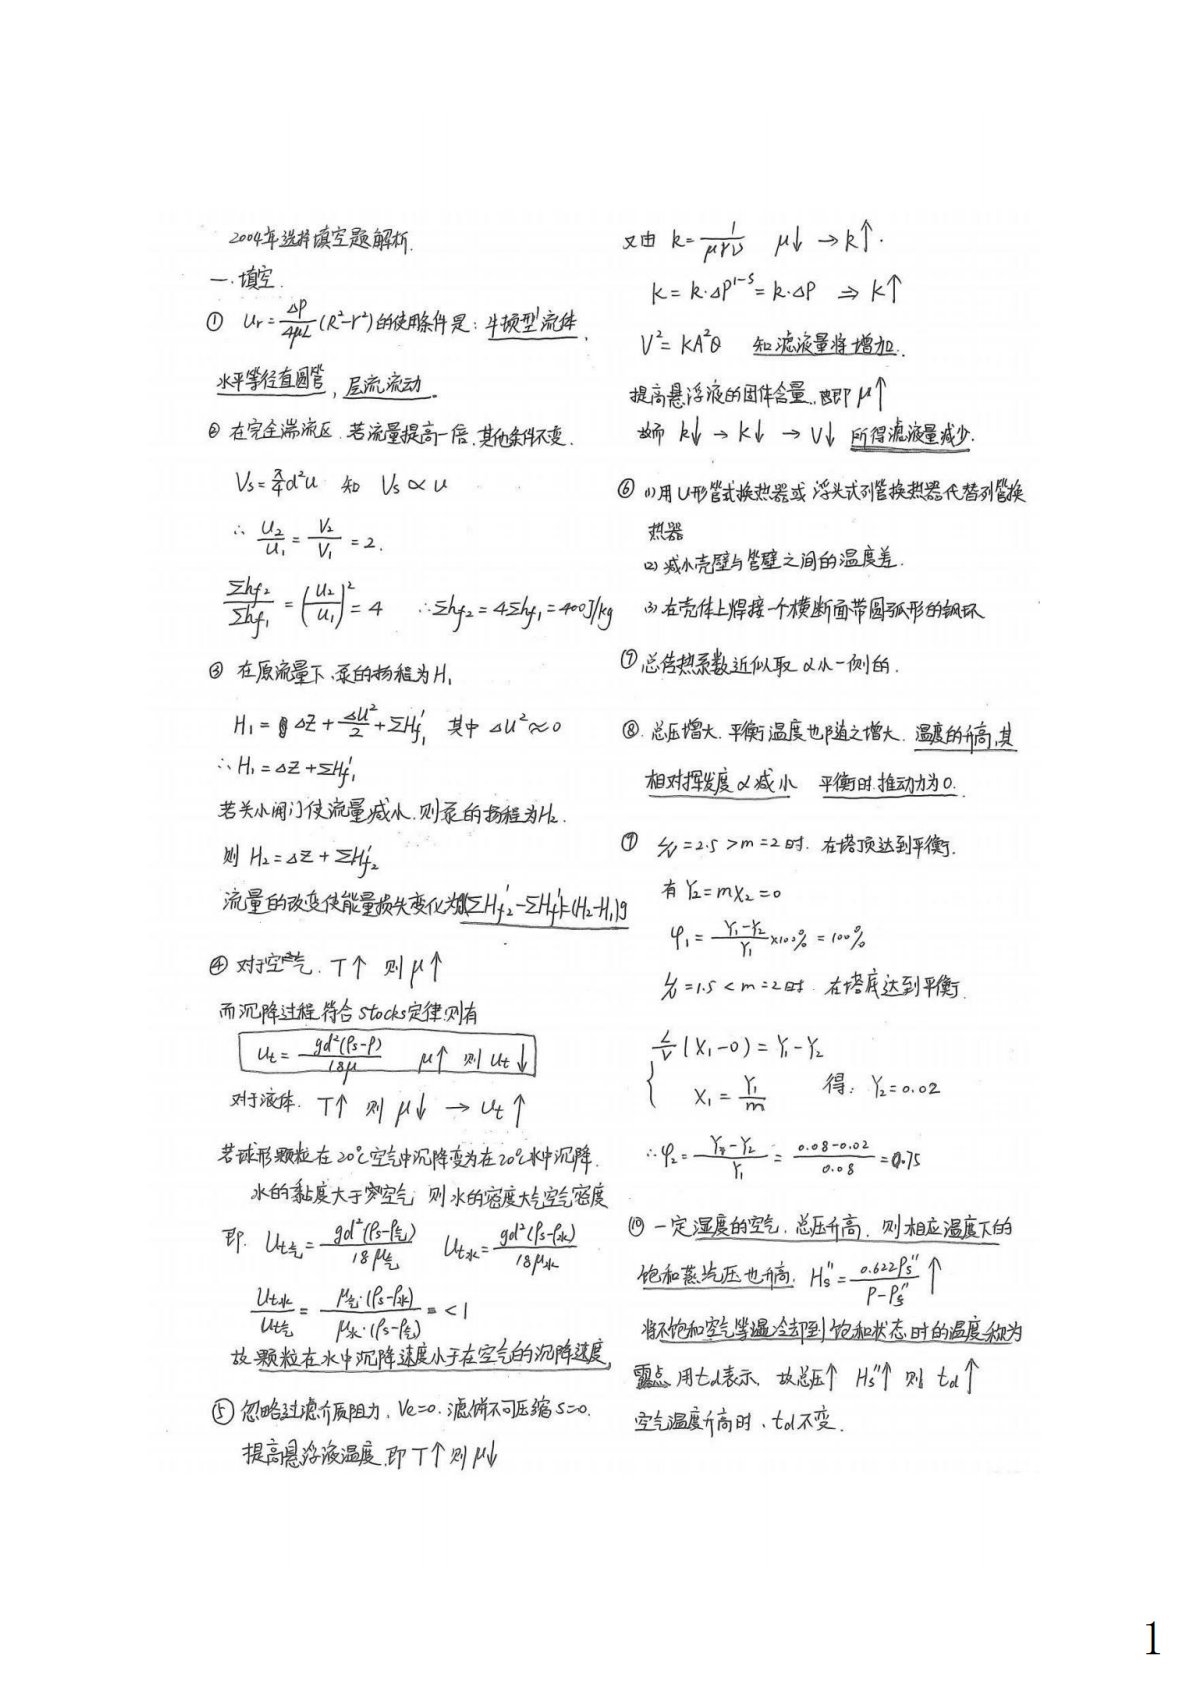 2004年选择填空题解析.
一.填空.
① Ur=ΔP/4μL(R²-r²)的使用条件是：牛顿型流体,
水平等径直圆管, 层流流动.
② 在完全湍流区.若流量提高一倍,其他条件不变.
Vs=π/4d²u 知 Vs∝u
∴ U₂/U₁=V₂/V₁=2.
Σhf₂/Σhf₁=(U₂/U₁)²=4 ∴Σhf₂=4Σhf₁=400J/kg
③ 在原流量下、泵的扬程为H₁
H₁=ΔZ+ΔU²/2+ΣHf₁' 其中 ΔU²≈0
∴H₁=ΔZ+ΣHf₁'
若关小阀门使流量减小.则泵的扬程为H₂.
则 H₂=ΔZ+ΣHf₂'
流量的改变使能量损失变化为(ΣHf₂'-ΣHf₁')=(H₂-H₁)g
④ 对于空气. T↑ 则μ↑
而沉降过程符合Stocks定律则有
Ut=gd²(ρs-ρ)/18μ μ↑ 则Ut↓
对于液体. T↑ 则μ↓ → Ut↑
若球形颗粒在20℃空气中沉降变为在20℃水中沉降.
水的黏度大于空气 则水的密度大气空气密度
即. Ut气=gd²(ρs-ρ气)/18μ气 Ut水=gd²(ρs-ρ水)/18μ水
Ut水/Ut气=μ气·(ρs-ρ水)/μ水·(ρs-ρ气)=<1
故颗粒在水中沉降速度小于在空气的沉降速度,
⑤ 忽略过滤介质阻力, Ve=0.滤饼不可压缩S=0.
提高悬浮液温度.即T↑则μ↓
又由 k=1/μrυ μ↓ →k↑.
K=k·ΔP¹⁻ˢ=k·ΔP ⇒ K↑
V²=KA²θ 知滤液量将增加.
提高悬浮液的固体含量.即μ↑
故而 k↓ → K↓ → V↓ 所得滤液量减少.
⑥ (1)用U形管式换热器或浮头式列管换热器代替列管换
热器
(2)减小壳壁与管壁之间的温度差.
(3)在壳体上焊接一个横断面带圆弧形的钢环
⑦总传热系数近似取α小一侧的.
⑧.总压增大.平衡温度也随之增大.温度的升高,其
相对挥发度α减小 平衡时.推动力为0.
⑨ L/V=2.5>m=2时.在塔顶达到平衡.
有Y₂=mX₂=0
φ₁=Y₁-Y₂/Y₁×100%=100%
L/V=1.5<m=2时.在塔底达到平衡.
L/V(X₁-0)=Y₁-Y₂
X₁=Y₁/m 得: Y₂=0.02
∴φ₂=Y₁-Y₂/Y₁=0.08-0.02/0.08=0.75
⑩ 一定湿度的空气.总压升高.则相应温度下的
饱和蒸汽压也升高. Hs''=0.622Ps''/P-Ps''↑
将不饱和空气等湿冷却到饱和状态时的温度称为
露点 用td表示、故总压↑ Hs''↑ 则 td↑
空气温度升高时、td不变.
1